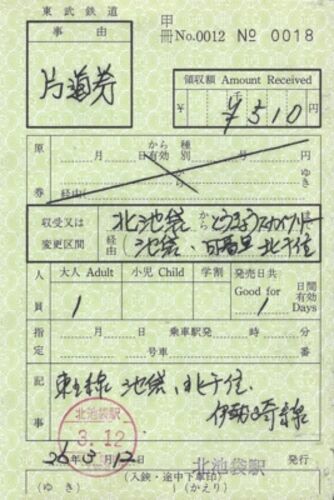 東武鉄道
事由
甲冊 No.0012 № 0018
片道券
領収額 Amount Received
¥ 千 円
¥510
原券
月 日から有効 種別 円
から ゆき
経由(
収受又は変更区間
北池袋 から とうきょうスカイツリー
経由 池袋、日暮里 北千住
人員
大人 Adult 小児 Child 学割 発売日共
1
Good for 1 日間有効 Days
指定
月 日 乗車駅発 時 分
号車 番
記事
東上線 池袋、北千住、
伊勢崎線
北池袋駅
3.12
26年3月12日 北池袋駅 発行
(入鋏・途中下車印)
(ゆき) (かえり)